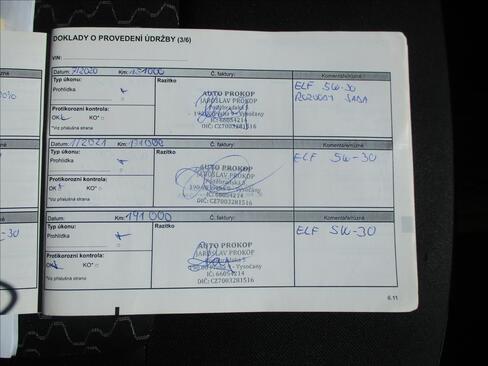 DOKLADY O PROVEDENÍ ÚDRŽBY (3/6)
VIN:
Datum: 7/2020 Km: 151000 Č. faktury: Komentáře/různé
Typ úkonu: Razítko ELF 5W-30
Prohlídka ROZVODY SADA
AUTO PROKOP
JAROSLAV PROKOP
Vysočany
IČ: 66054214
DIČ: CZ7003281516
Protikorozní kontrola:
OK KO*
*Viz příslušná strana
Datum: 1/2021 Km: 171000 Č. faktury: Komentáře/různé
Typ úkonu: Razítko ELF 5W-30
Prohlídka
AUTO PROKOP
JAROSLAV PROKOP
Vysočany
IČ: 66054214
DIČ: CZ7003281516
Protikorozní kontrola:
OK KO*
*Viz příslušná strana
Datum: Km: 191 000 Č. faktury: Komentáře/různé
Typ úkonu: Razítko ELF 5W-30
Prohlídka
AUTO PROKOP
JAROSLAV PROKOP
Vysočany
IČ: 66054214
DIČ: CZ7003281516
Protikorozní kontrola:
OK KO*
*Viz příslušná strana
6.11